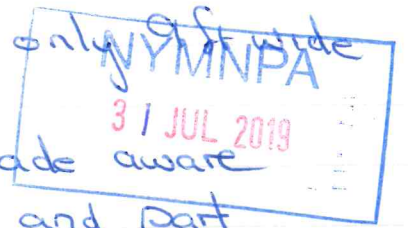 only 9ft wide
NYMNPA
31 JUL 2019
ade aware
and part